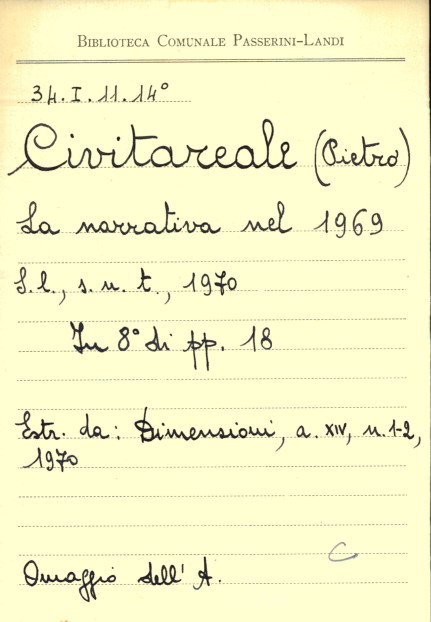 BIBLIOTECA COMUNALE PASSERINI-LANDI
34.I.11.14°
Civitareale (Pietro)
La narrativa nel 1969
S.l., s.n.t., 1970
In 8° di pp. 18
Estr. da: Dimensioni, a. XIV, n. 1-2,
1970
C
Omaggio dell'A.